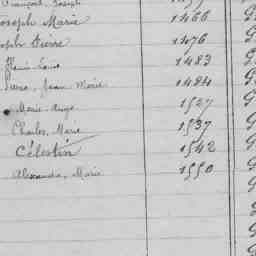 François, Joseph
Joseph Marie 1466 G
Joseph Pierre 1476 G
1483 G
Pierre, Jean Marie 1484 G
Marie Ange 1527 G
Charles, Marie 1537 G
Célestin 1542 G
Alexandre, Marie 1550 G
G
G
G